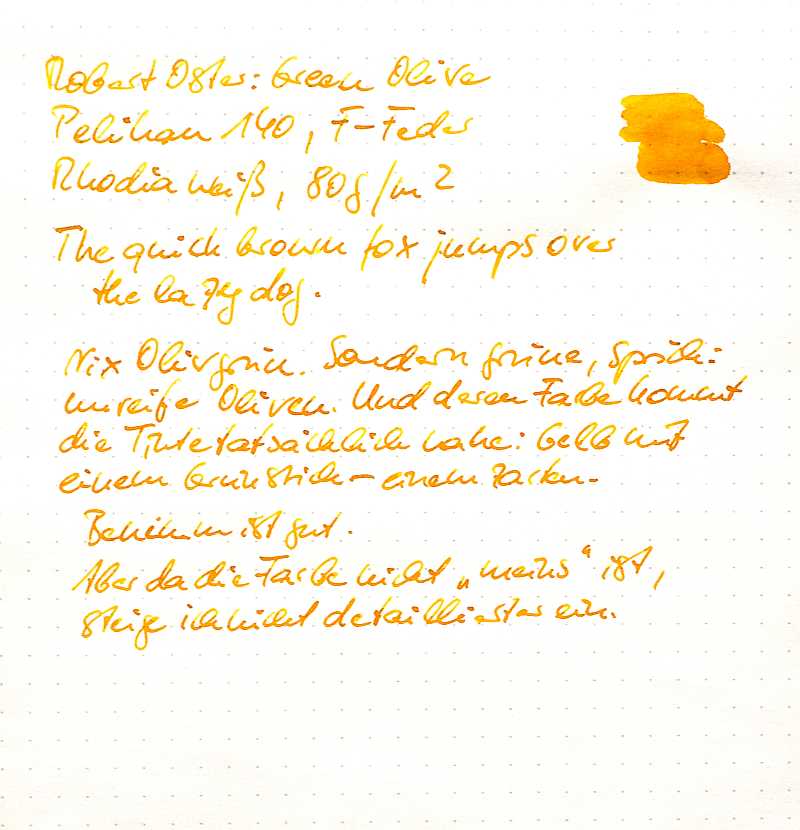 Robert Oster: Green Olive
Pelikan 140, F-Feder
Rhodia weiß, 80g/m2
The quick brown fox jumps over
the lazy dog.
Nix Olivgrün. Sondern grüne, sprich:
unreife Oliven. Und deren Farbe kommt
die Tinte tatsächlich nahe: Gelb mit
einem Grünstich – einem zarten.
Benehmen ist gut.
Aber da die Farbe nicht „meins“ ist,
steige ich nicht detaillierter ein.